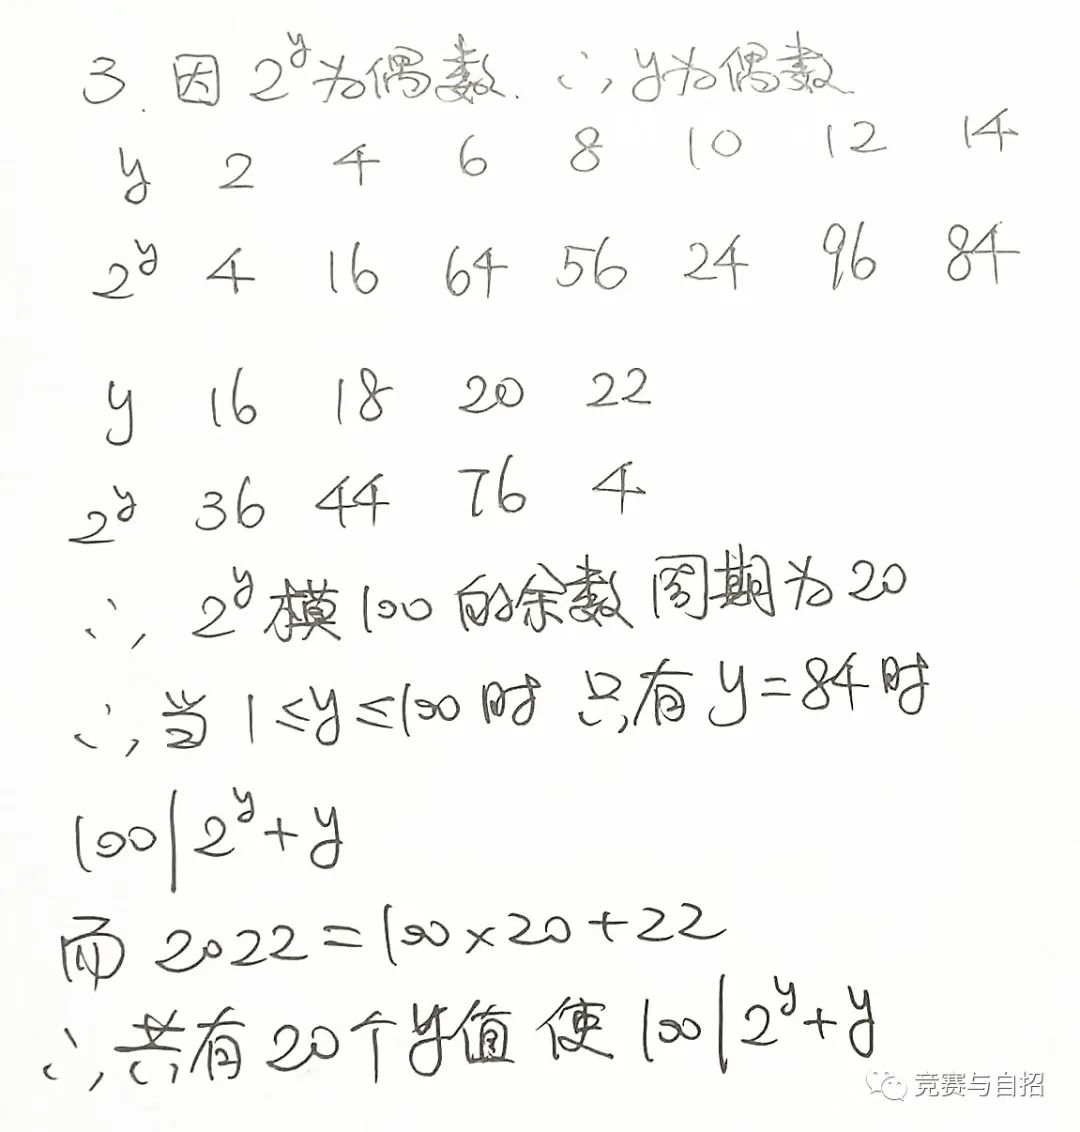 3. 因 2^y 为偶数. ∴ y为偶数
y 2 4 6 8 10 12 14
2^y 4 16 64 56 24 96 84
y 16 18 20 22
2^y 36 44 76 4
∴ 2^y 模100 的余数 周期为20
∴ 当 1≤y≤100时 只有 y=84时
100|2^y+y
而 2022=100×20+22
∴ 共有20个y值 使100|2^y+y
竞赛与自招